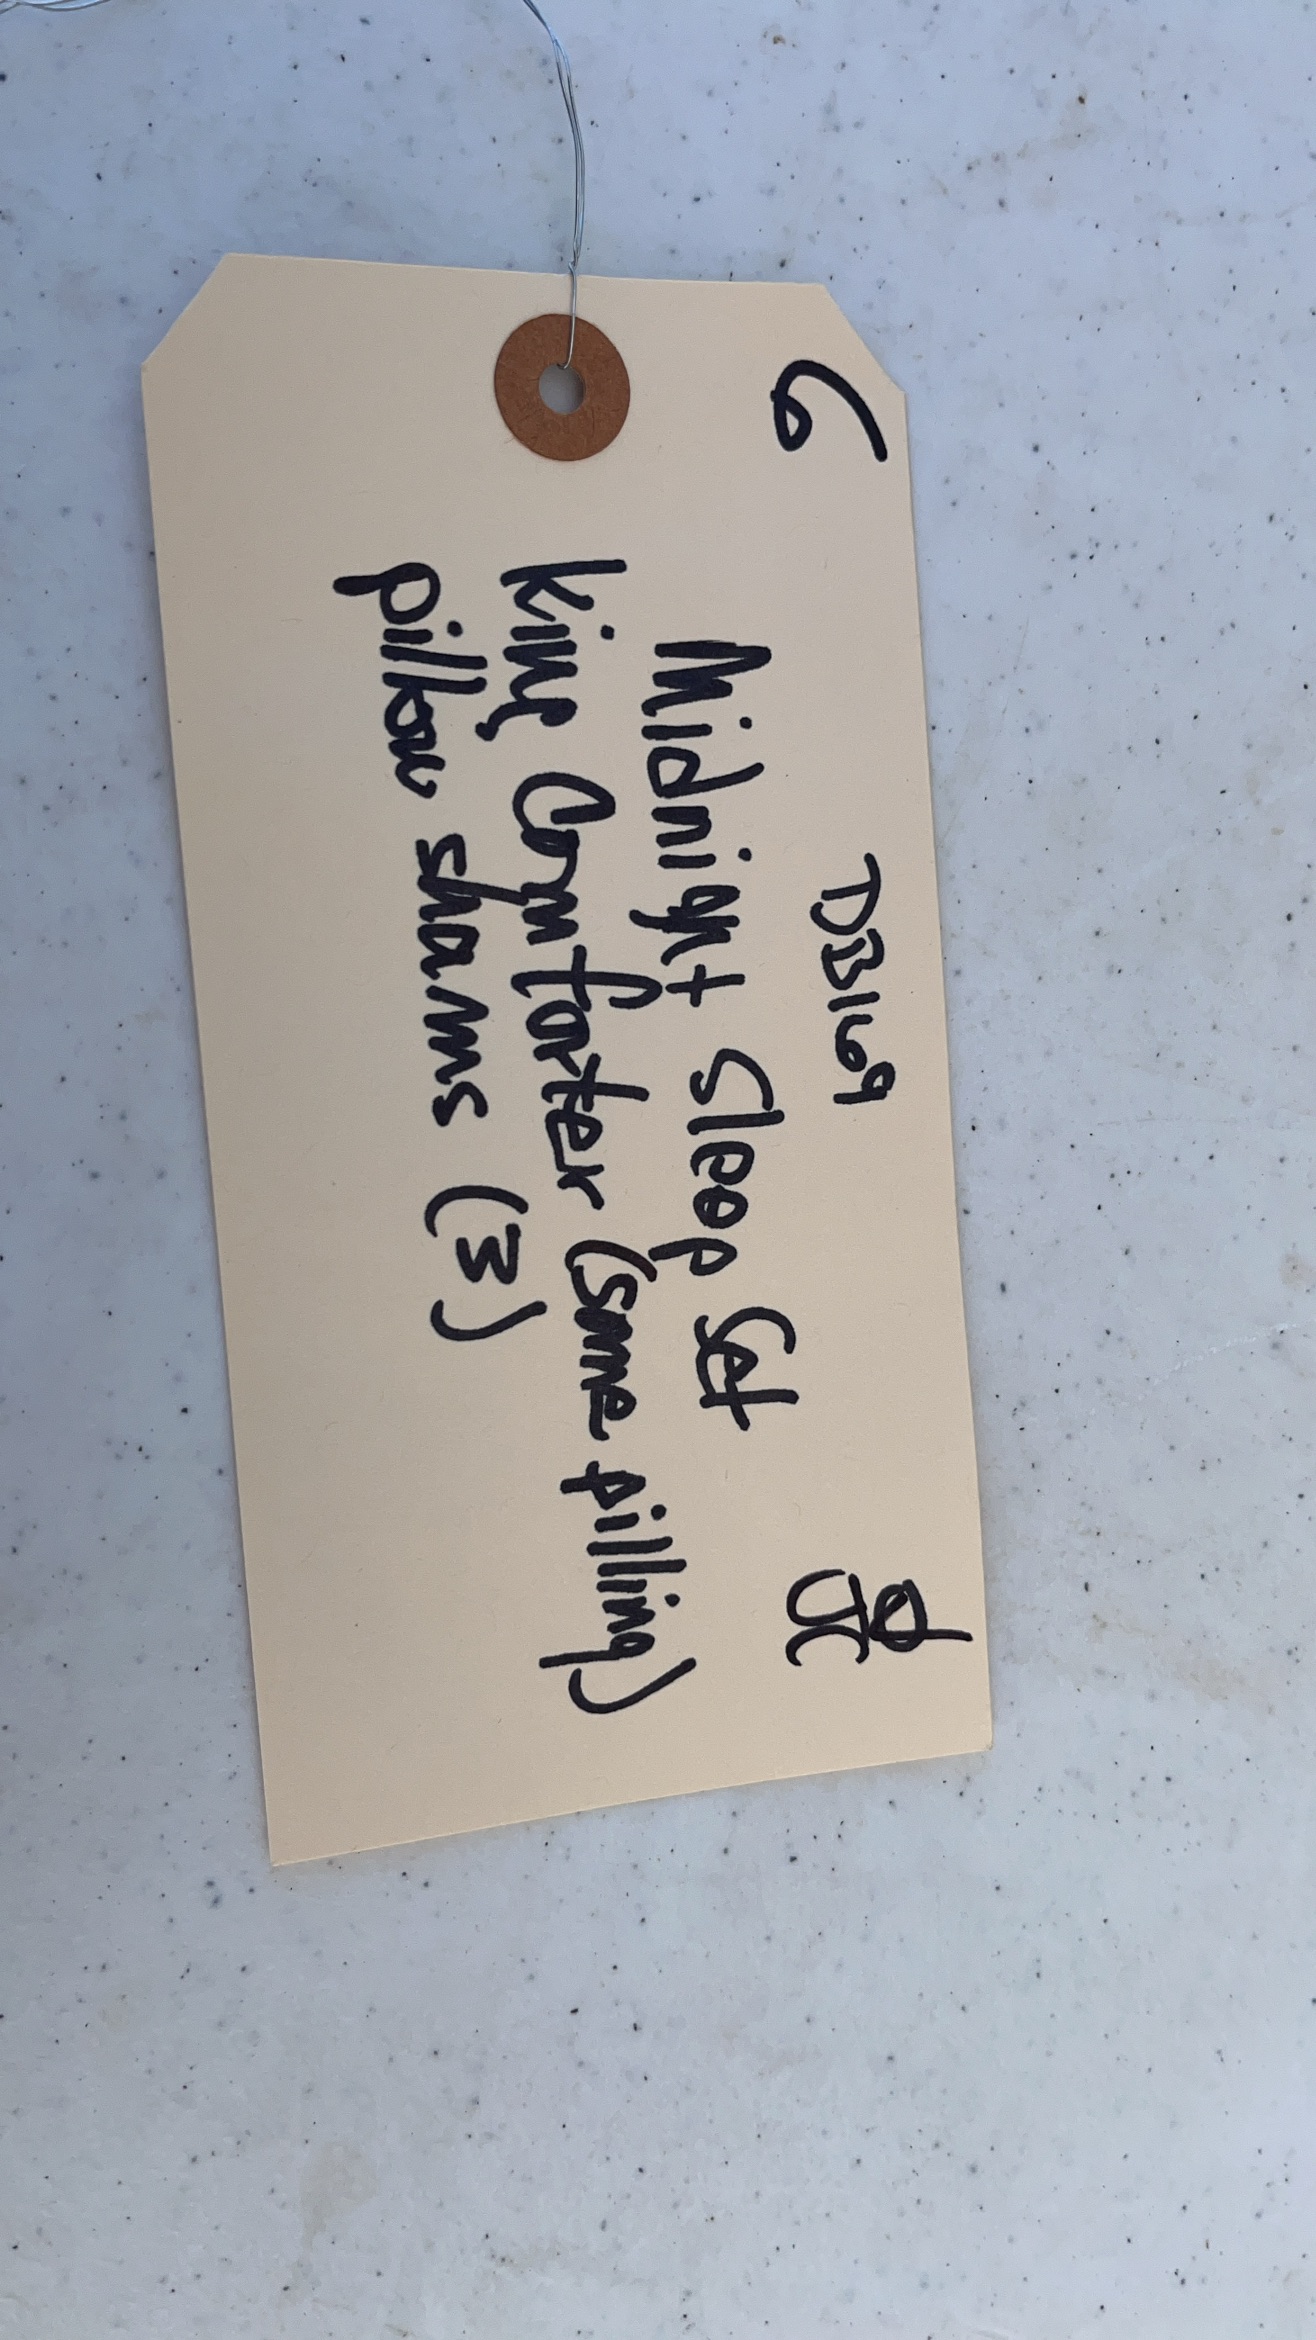 6
DB169
JC
Midnight Sleep Set
King Comforter (some pilling)
pillow shams (3)